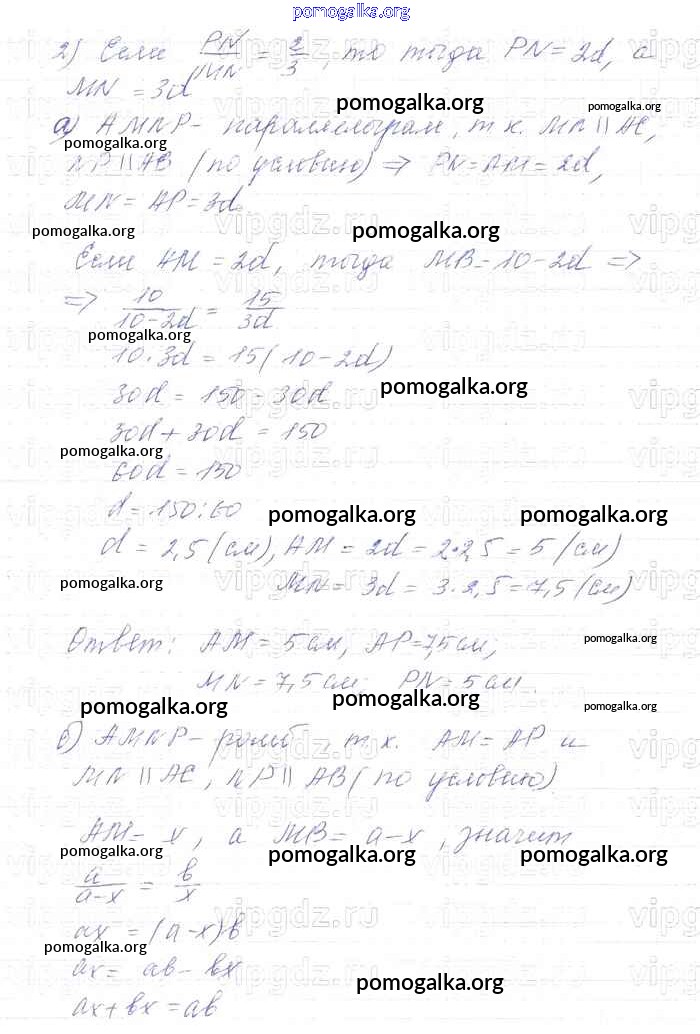 pomogalka.org
2) Если PN/MN = 2/3, то тогда PN = 2d, а
MN = 3d
pomogalka.org
pomogalka.org
а) AMNP - параллелограм, т.к. MN || AC,
pomogalka.org
NP || AB (по условию) ⇒ PN = AM = 2d,
MN = AP = 3d
pomogalka.org
pomogalka.org
Если AM = 2d, тогда MB = 10 - 2d ⇒
⇒ 10/(10-2d) = 15/3d
pomogalka.org
10·3d = 15(10-2d)
pomogalka.org
30d = 150 - 30d
30d + 30d = 150
pomogalka.org
60d = 150
d = 150:60
pomogalka.org
pomogalka.org
d = 2,5 (см), AM = 2d = 2·2,5 = 5 (см)
pomogalka.org
MN = 3d = 3·2,5 = 7,5 (см)
Ответ: AM = 5см, AP = 7,5см;
pomogalka.org
MN = 7,5см; PN = 5см.
pomogalka.org
pomogalka.org
pomogalka.org
б) AMNP - ромб, т.к. AM = AP и
MN || AC, NP || AB (по условию)
AM = x, а MB = a-x, значит
pomogalka.org
pomogalka.org
pomogalka.org
a/(a-x) = b/x
vipgdz.ru
ax = (a-x)b
pomogalka.org
ax = ab - bx
pomogalka.org
ax + bx = ab